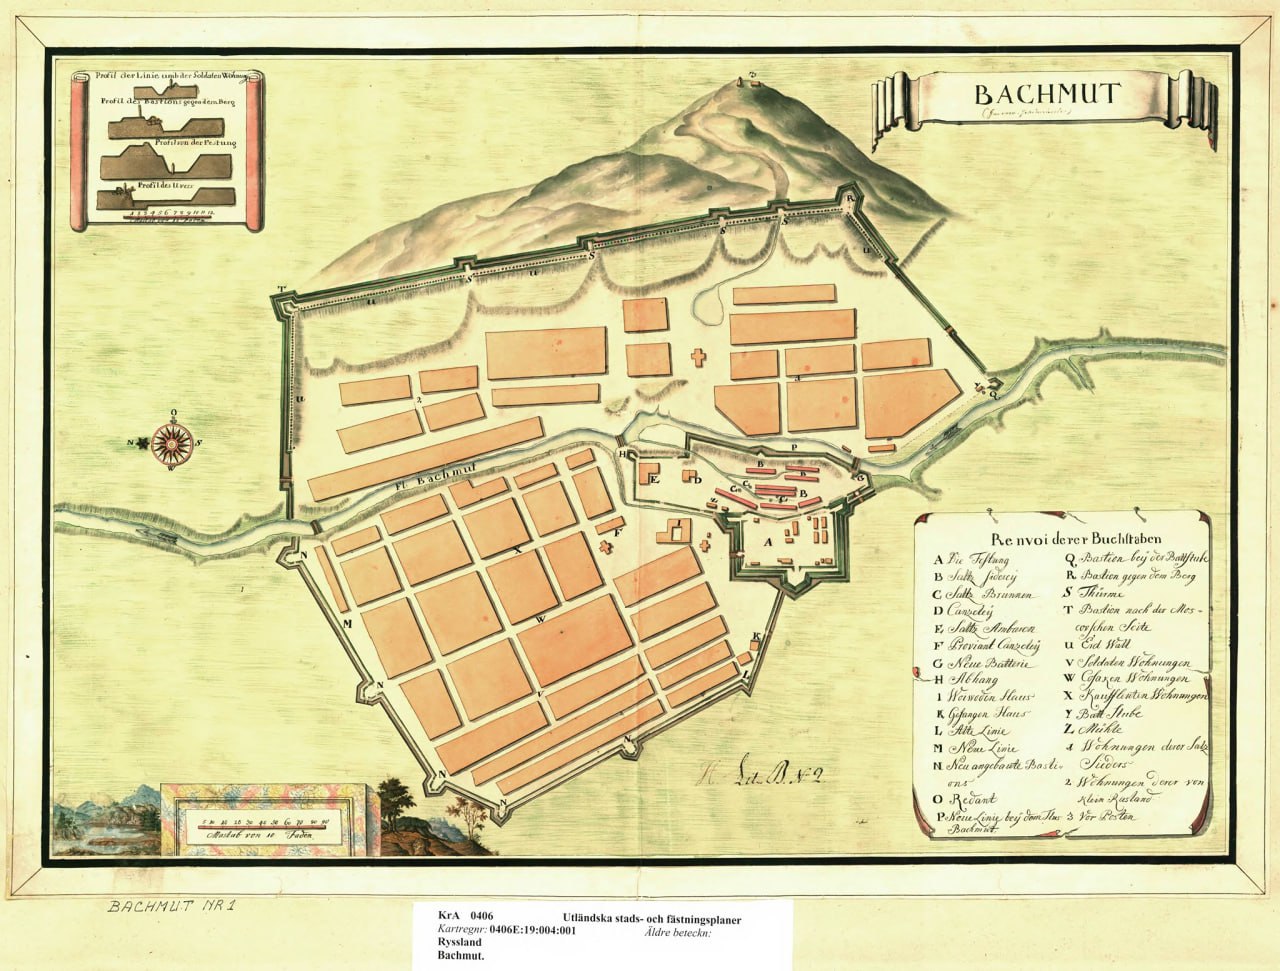 BACHMUT
Profil der Linie umb der Soldaten Wohnung
Profil der Bastions gegen dem Berg
Profil von der Festung
Profil des
1 2 3 4 5 6 7 8 9 10 11 12
3
T
S
S
S
S
R
U
U
U
U
Y
Q
O
N
S
W
2
1
Fl. Bachmut
H
P
E
D
B
B
B
C
C
C
Z
G
A
I
F
X
N
M
W
K
L
V
N
N
N
N
Lit. B. N 2.
Renvoi derer Buchstaben
A Die Festung
B Saltz Siderey
C Saltz Brunnen
D Canzeley
E Saltz Ambaren
F Proviant Canzeley
G Neue Batterie
H Abhang
I Woiwoden Haus
K Gefangen Haus
L Alte Linie
M Neue Linie
N Neu angebaute Basti-
ons
O Redant
P Neue Linie bey dem Flus
Bachmut.
Q Bastion bey der Battstube
R Bastion gegen dem Berg
S Thürme
T Bastion nach der Mos-
covschen Seite
U Erd Wall
V Soldaten Wohnungen
W Cosaken Wohnungen
X Kauffleuten Wohnungen
Y Batt Stube
Z Mühle
1 Wohnungen derer Saltz
Sieders
2 Wohnungen derer von
Klein Rusland
3 Vor Posten
5 10 20 30 40 50 60 70 80 90
Mastab von 10 Faden
BACHMUT NR 1
KrA 0406 Utländska stads- och fästningsplaner
Kartregnr: 0406E:19:004:001 Äldre beteckn:
Ryssland
Bachmut.